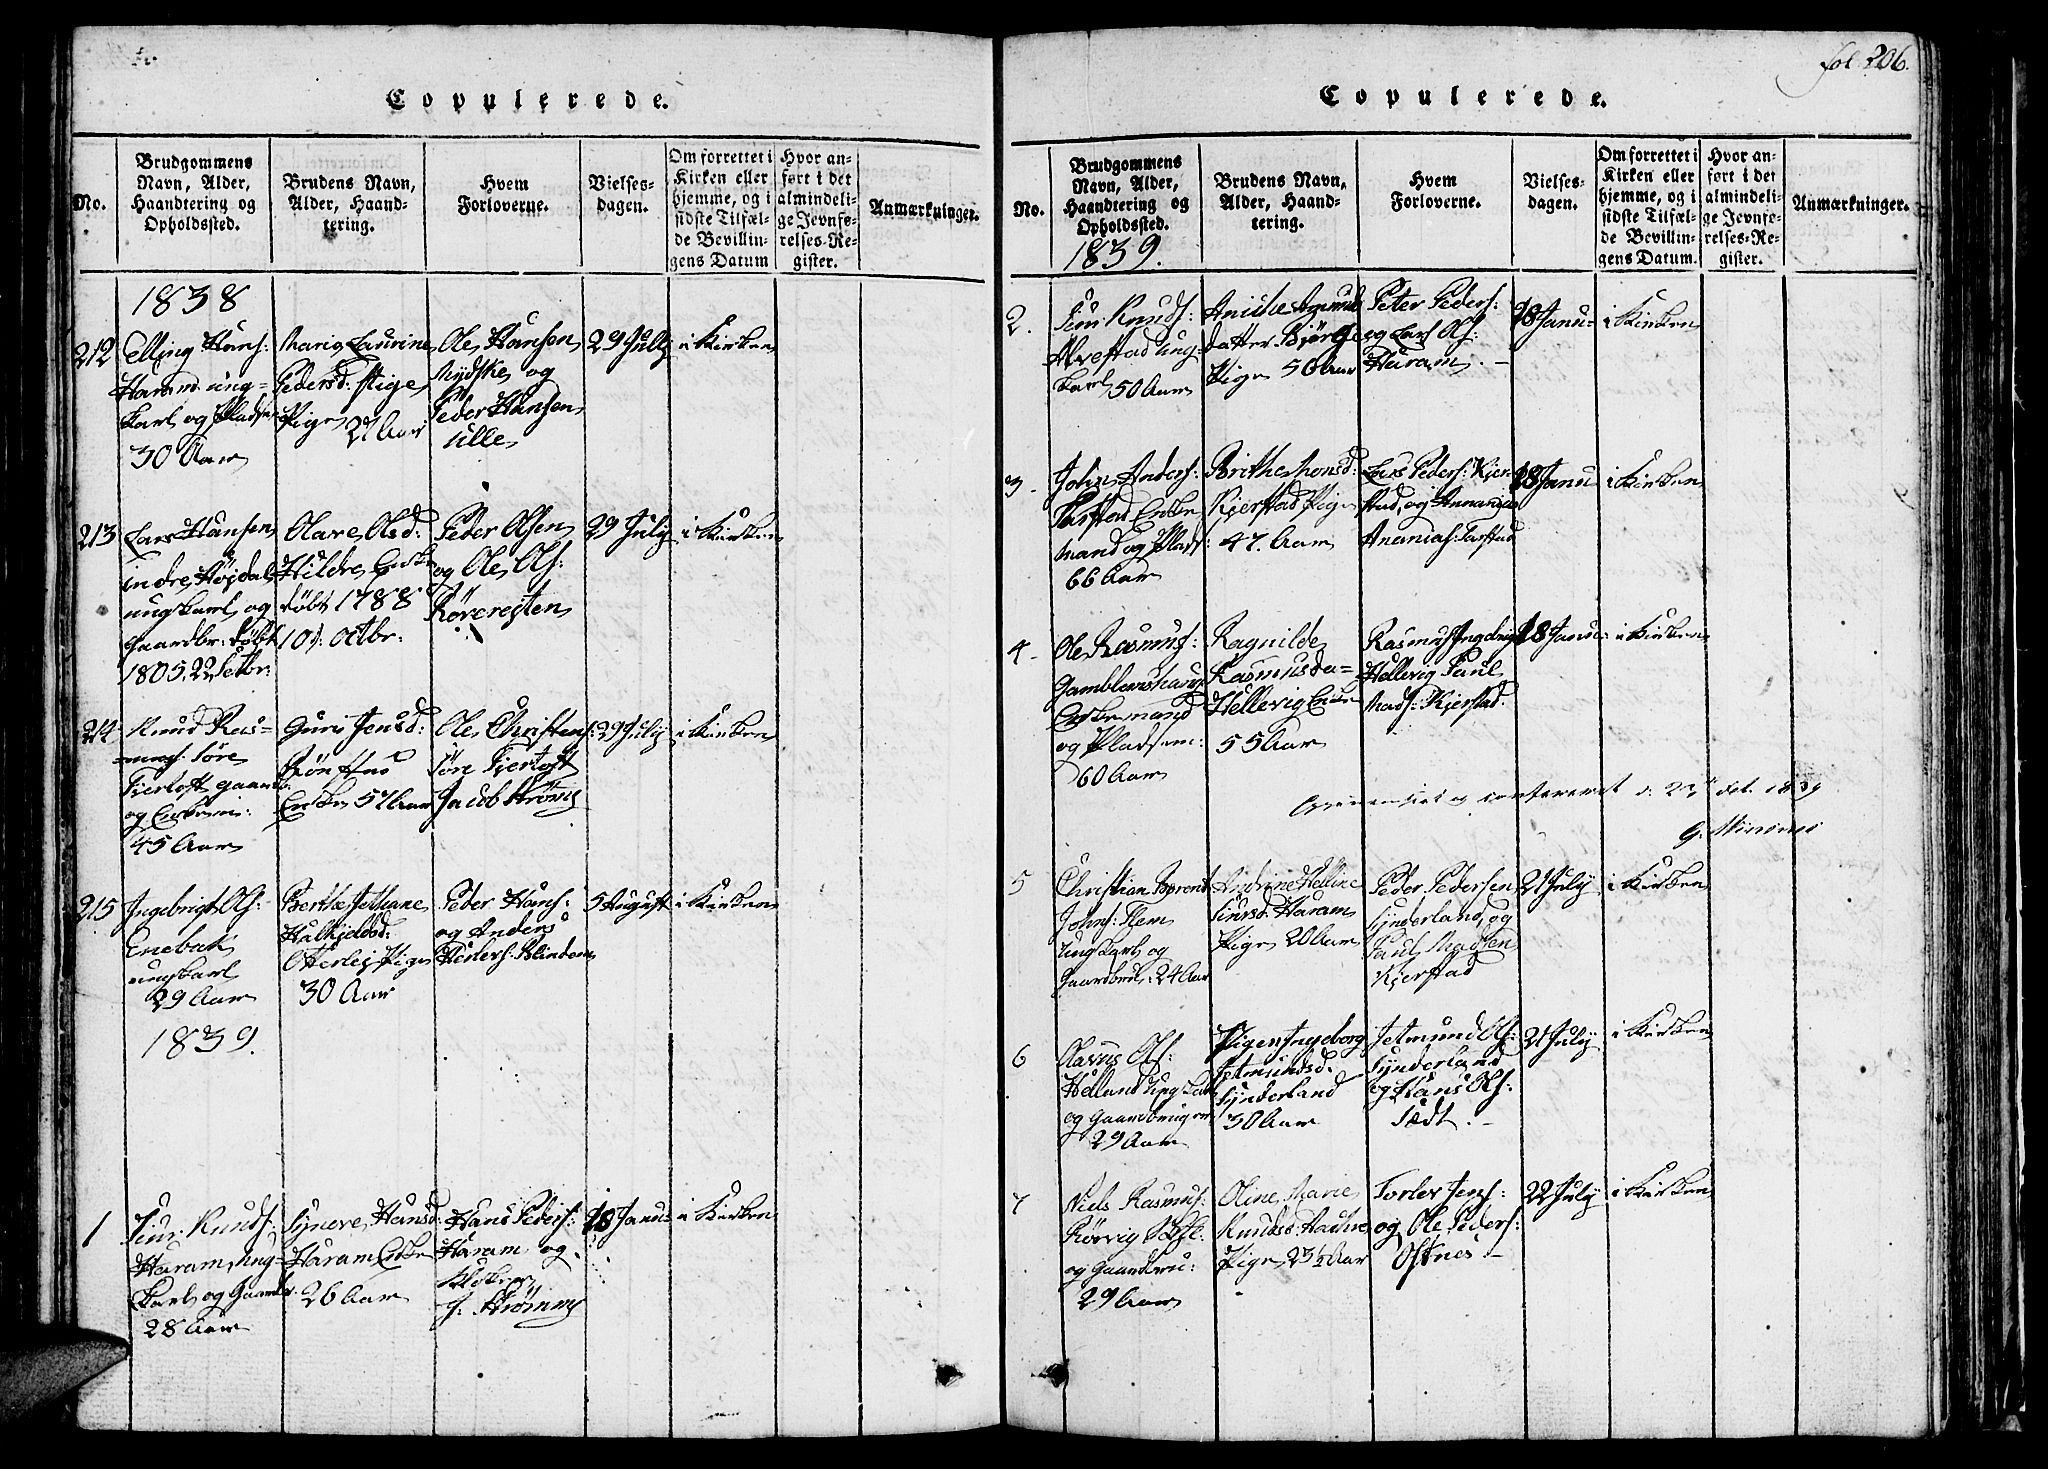 Copulerede.
No.
Brudgommens
Navn, Alder,
Haandtering og
Opholdssted.
Brudens Navn,
Alder, Haand-
tering.
Hvem
Forloverne.
Vielses-
dagen.
Om forrettet i
Kirken eller
hjemme, og i
sidste Tilfæl-
de Bevillin-
gens Datum
Hvor an-
ført i det
almindeli-
ge Jevnfø-
relses-Re-
gister.
Anmærkninger.
1838
212
Elling Hans:
Haram ung-
karl og Pladsm
30 Aar
Marie Laurine
Pedersd:
Pige 27 Aar
Ole Hansen
og
Peder Hansen
Ulle
29 July
i Kirken
213
Lars Hansen
indre Højdal
ungkarl og
Gaardbr: døbt
1805, 22 Setbr:
Olave Olsd:
Hildre Enke
døbt 1788
10d. Octbr:
Peder Olsen
og Ole Ols:
Røvereiten
29 July
i Kirken
214
Knud Ras-
mus: søre
Fiertoft gaardb.
og Enkem:
45 Aar
Guri Jensd:
Rønstad
Enke 57 Aar
Ole Christens:
søre Fiertoft
Jacob Strømme
29 July
i Kirken
215
Ingebrigt Ols:
Enebak
ungkarl
29 Aar
Berthe Jethane
Halkjeldsd:
Otterlej Pige
30 Aar
Peder Hans:
og Anders
Peders: Blindem
5 August
i Kirken
1839.
1
Siur Knuds:
Haram, ung-
karl og Gaardbr.
28 Aar
Synøve Hansd:
Haram Enke
26 Aar
Hans Peders:
Haram og
Klokker
J. Strømme
18 Janu:
i Kirken
fol 206.
Copulerede.
No.
Brudgommens
Navn, Alder,
Haandtering og
Opholdssted.
Brudens Navn,
Alder, Haand-
tering.
Hvem
Forloverne.
Vielses-
dagen.
Om forrettet i
Kirken eller
hjemme, og i
sidste Tilfæl-
de Bevillin-
gens Datum.
Hvor an-
ført i det
almindeli-
ge Jevnfø-
relses-Re-
gister.
Anmærkninger.
1839.
2.
Siur Knuds:
Alvestad ung-
karl 50 Aar
Aniche Amunds
datter Bjørge
Pige 50 Aar
Peter Peders:
og Lars Ols:
Haram. -
18 Janu-
i Kirken
3.
John Anders:
Tarstad Enke
mand og Plads:
66 Aar
Brithe Jonsd:
Kjerstad Pige
47. Aar
Lars Peders: Kjer-
stad, og Annanias
Ananias: Tarstad
18 Janu
i Kirken
4.
Ole Rasmus:
Gamblemshaug
Enkemand
og Pladsem:
60 Aar
Ragnilde
Rasmusda-
Hellevig Enke
55 Aar
Rasmus Ingebrigt
Hellevig Paul
Mads: Kjerstad.
18 Janu:
i Kirken
og confereret d: 23 1839
5
Christian Berent
Johns: Flem
ungkarl og
Gaardbrb: 24 Aar
Andrine Helline
Siursd: Haram
Pige 20 Aar
Peder Pedersen
Synderland, og
Paul Madsen
Kjerstad
21 July
i Kirken
6
Rasmus Ols:
Helland ung karl
og Gaardbruger
29 Aar
Pigen Ingeborg
Jetmundsd.
Synderland
30 Aar
Jetmund Ols:
Synderland
og Hans Ols:
Sædt. -
21 July
i Kirken
7
Niels Rasmus:
Rørvig
og Gaardbru:
29 Aar
Oline Marie
Knudsd:
Pige 23½ Aar
Torlev Jens:
og Ole Peders:
Østnes -
22 July
i Kirken